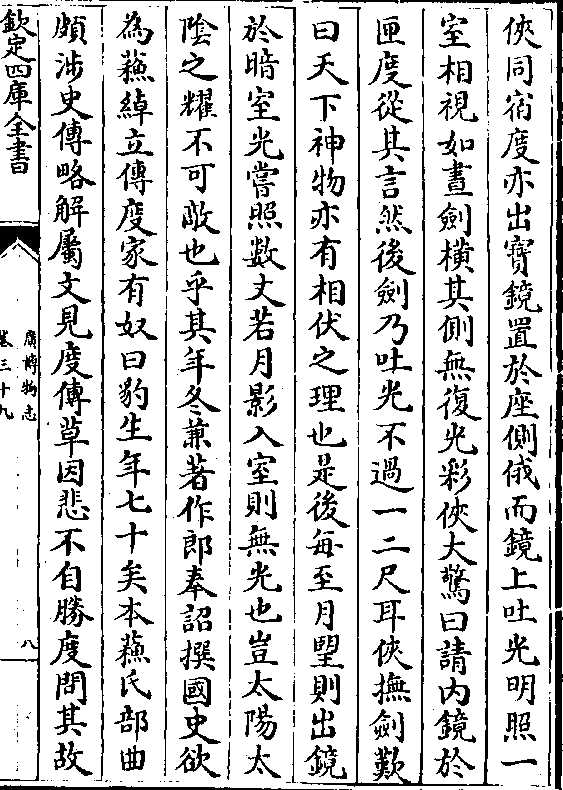 俠同宿度亦出寶鏡置於座側俄而鏡上吐光明照一
室相視如晝劍橫其側無復光彩俠大驚曰請内鏡於
匣度從其言然後劍乃吐光不過一二尺耳俠撫劍歎
曰天下神物亦有相伏之理也是後每至月朢則出鏡
於暗室光嘗照數丈若月影入室則無光也豈太陽太
陰之耀不可敵也乎其年冬兼著作郎奉詔撰國史欲
為蘓綽立傳度家有奴曰豹生年七十矣本蘓氏部曲
頗涉史傳略解屬文見度傳草因悲不自勝度問其故
欽定四庫全書
廣博物志
卷三十九
八